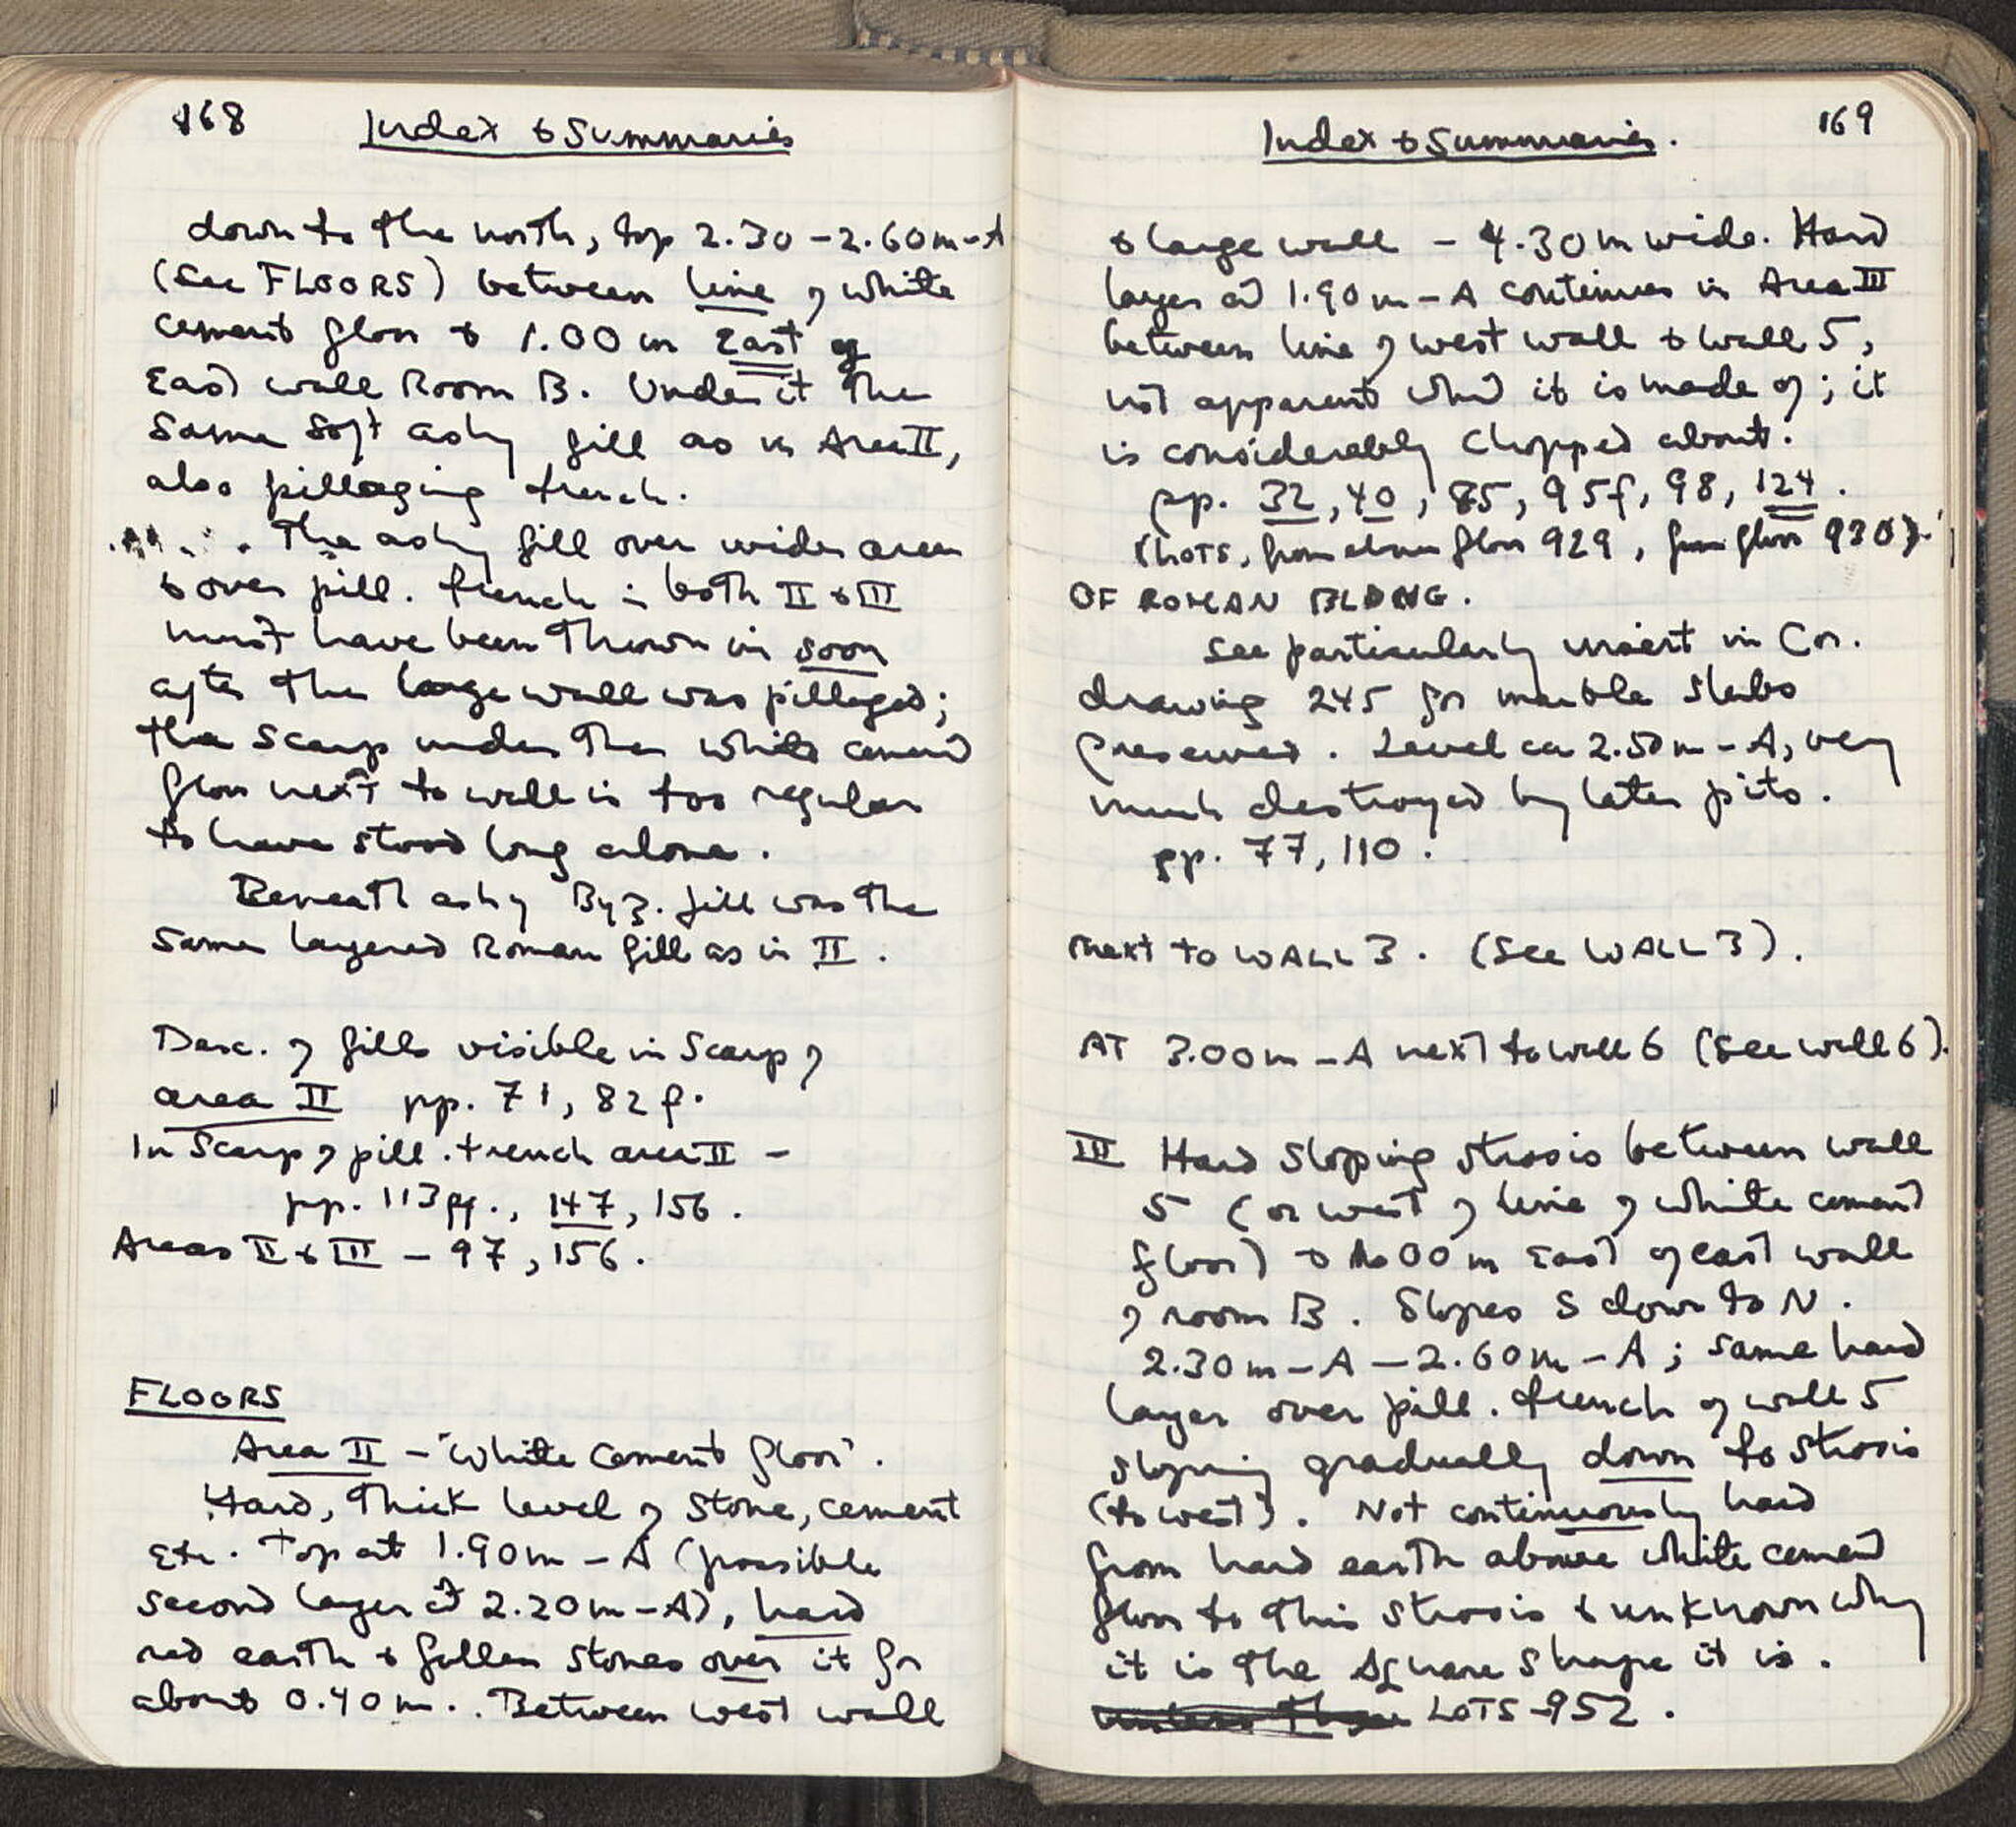 168 Index & Summaries
down to the north, top 2.30 - 2.60m - A
(see FLOORS) between line of white
cement floor & 1.00 m East of
East wall Room B. Under it the
same soft ashy fill as in Area II,
also pillaging trench.
The ashy fill over wider area
& over pill. trench in both II & III
must have been thrown in soon
after the large wall was pillaged;
the scarp under the white cement
floor next to wall is too regular
to have stood long alone.
Beneath ashy Byz. fill was the
same layered Roman fill as in II.
Desc. of fills visible in scarp of
area II pp. 71, 82f.
In scarp of pill. trench area II -
pp. 113ff., 147, 156.
Areas II & III - 97, 156.
FLOORS
Area II - "White cement floor".
Hard, thick level of stone, cement
etc. Top at 1.90m - A (possible
second layer at 2.20m - A), hard
red earth & fallen stones over it for
about 0.40m.. Between west wall
Index & Summaries. 169
& large wall - 4.30m wide. Hard
layer at 1.90m - A continues in Area III
between line of west wall & wall 5,
not apparent what it is made of; it
is considerably chopped about.
pp. 32, 40, 85, 95f, 98, 124.
(LOTS, from above floor 929, from floor 930).
OF ROMAN BLDNG.
See particularly insert in Cor.
drawing 245 for marble slabs
preserved. Level ca 2.50m - A, very
much destroyed by later pits.
pp. 77, 110.
next to WALL 3. (See WALL 3).
AT 3.00m - A next to wall 6 (see wall 6).
III Hard sloping strosis between wall
5 (or west of line of white cement
floor) & 1.00m East of east wall
of room B. Slopes S down to N.
2.30m - A - 2.60m - A; same hard
layer over pill. trench of wall 5
sloping gradually down to strosis
(to west). Not continuously hard
from hard earth above white cement
floor to this strosis & unknown why
it is the square shape it is.
LOTS - 952.